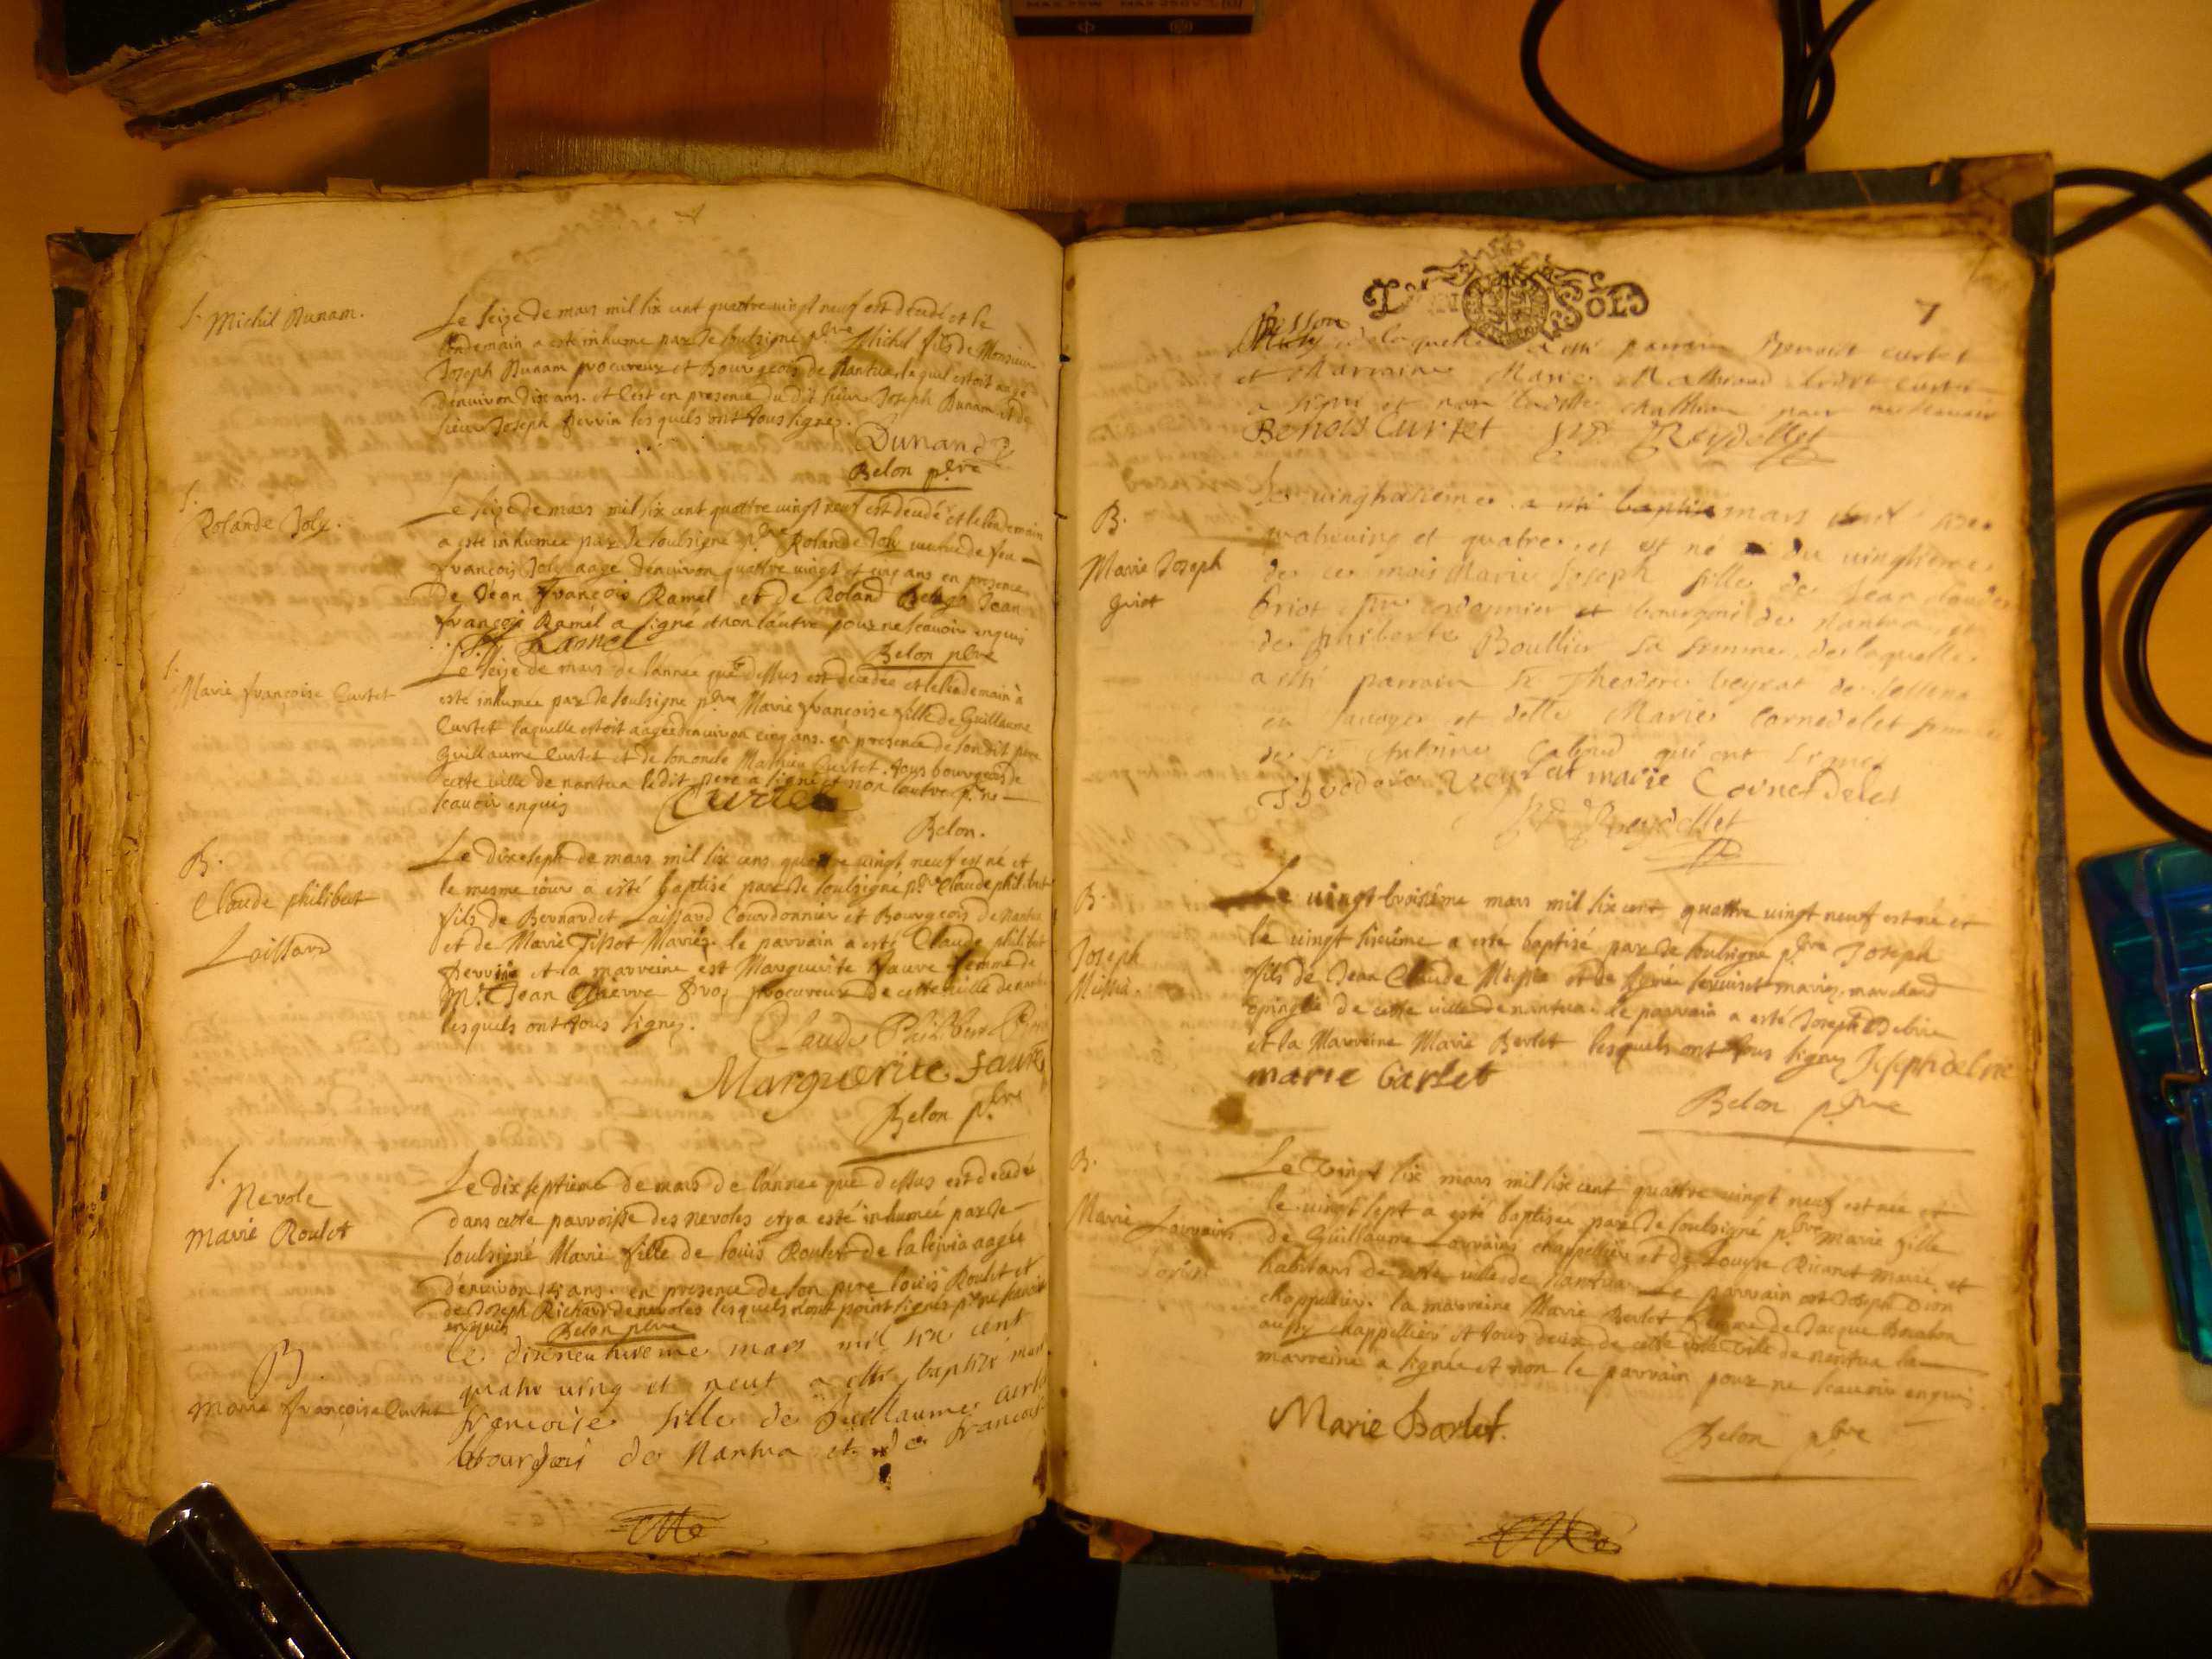 S. Michel Dunam.
Le seize de mars mil six cent quattre vingt neuf est decedé et le
lendemain a esté inhume par Je soubsigné pbre Michel fils de Monsieur
Joseph Dunam procureur et Bourgeois de Nantua, le quel estoit aagé
denuiron dix ans. et c'est en presence du dit sieur Joseph Dunam et de
sieur Joseph Perrin les quels ont tous signez.
Dunand
Belon pbre
S.
Rolande Joly.
Le seize de mars mil six cent quattre vingt neuf est decedé et le lendemain
a esté inhumee par Je soubsigné pbre Rolande Joly veuue de feu
françois Joly aage denuiron quattre vingt et cinq ans en presence
De Jean François Ramel et de Roland Jean
françois Ramel a signé et non l'autre pour ne scauoir enquis
Ramel
Belon pbre
S.
Marie françoise Curtet
Le seize de mars de l'annee que dessus est decedée et le lendemain à
esté inhumée par Je soubsigné pbre Marie françoise fille de Guillaume
Curtet laquelle estoit aagée denuiron cinq ans. en presence de son dit pere
Guillaume Curtet et de son oncle Mathieu Curtet. tous bourgeois de
cette ville de nantua ledit pere a signé et non l'autre pr ne
scauoir enquis
Curtet
Belon.
B.
Claude philibert
Laissard
Le dixseph de mars mil six cens quattre vingt neuf est né et
le mesme iour a esté baptisé par Je soubsigné pbre Claude philibert
fils de Bernardet Laissard Courdonnier et Bourgeois de nantua
et de Marie Tissot Mariéz. le parrain a esté Claude philibert
Perrin et la marreine est Marguerite Faure femme de
Mr. Jean Pierre procureur de cette ville de nantua
lesquels ont tous signez.
Claude Philibert
Marguerite faure
Belon pbre
S.
Nevole
Marie Roulet
Le dixseptieme de mars de l'annee que dessus est decedée
dans cette parroisse des nevoles et y a esté inhumée par Je
soubsigné Marie fille de louis Roulet de aagée
d'enuiron 15 ans. en presence de son pere louis Roulet et
de Joseph Richard de nevoles lesquels n'ont point signés pr ne scauoir
enquis Belon pbre
B
Marie françoise Curtet
le dixneufuieme mars mil six cent
quatre uing et neuf a esté baptisé marie
francoise fille de Guillaume Curtet
bourgois de Nantua et de francoise
7
SOLS
de laquelle a esté parrain Benoist curtet
et Marraine Marie
a signé et non
Benois Curtet Reydellet
B.
Marie Joseph
Guiot
Le uingtroisieme mars
quatreuing et quatre et est né du uingtieme
de ce mois Marie Joseph fille de Jean claude
cordonnier et bourgois de Nantua et
de philiberte Boullier sa femme, de laquelle
a esté parrain Sr Theodore Veyrat de
en sauoye et delle Marie Cornedelet femme
de Sr Antoine qui ont signé
Theodore Veyrat marie Cornedelet
Reydellet
B.
Joseph
Missia.
Le vingt troisiéme mars mil six cent quattre vingt neuf est né et
le vingt sixieme a esté baptisé par Je soubsigné pbre Joseph
fils de Jean Claude Missia et de mariez. marchand
epinglié de cette ville de nantua. le parrain a esté Joseph Debrie
et la Marreine Marie Berlet lesquels ont tous signez
marie barlet
Belon pbre
B.
Marie Lorrains
Le Vingt six mars mil six cent quattre vingt neuf est née et
le vingt sept a esté baptisee par Je soubsigné pbre Marie fille
de Guillaume Lorrains chappellier et de Louyse mariés et
habitans de cette ville de Nantua. Le parrain est Joseph
chappellier. la marreine Marie Berlet femme de Jacque
aussy chappellier et tous deux de cette ville de nantua la
marreine a signée et non le parrain pour ne scauoir enquis
Marie Barlet.
Belon pbre